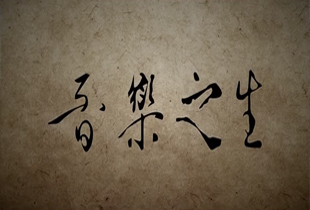 音樂之生